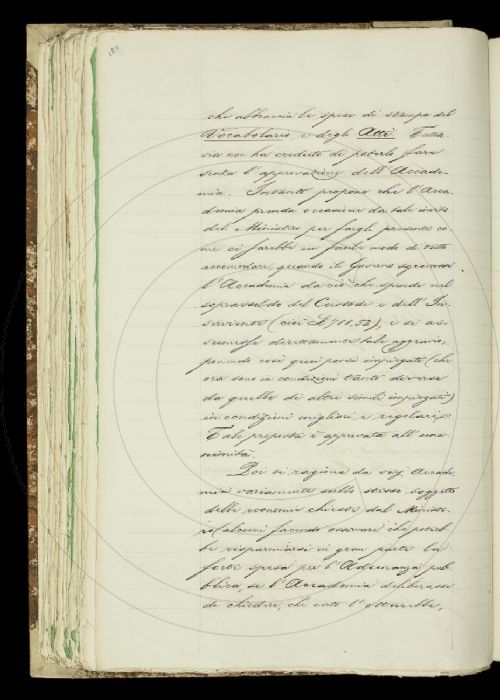 che abbraccia le spese di stampa del
Vocabolario, e degli Atti. Tutta-
via non ha creduto di poterlo fare
senza l'approvazione dell'Accade-
mia. Intanto propone che l'Acca-
demia prenda occasione da tale invito
del Ministro per fargli presente co-
me ci sarebbe un facile modo di tutto
accomodare, quando il Governo sgravasse
l'Accademia da ciò che spende nel
soprassoldo del Custode e dell'In-
serviente (cioè £ 711,52), e si as-
sumesse direttamente tale aggravio,
ponendo così quei poveri impiegati (che
ora sono in condizioni tanto diverse
da quelle di altri simili impiegati)
in condizioni migliori e regolari.
Tale proposta è approvata all'una-
nimità.
Poi si ragiona da varj Accade-
mici variamente sullo stesso soggetto
delle economie chieste dal Ministe-
ro; alcuni facendo osservare che potreb-
be risparmiarsi in gran parte la
forte spesa per l'Adunanza pub-
blica, se l'Accademia deliberasse
di chiedere, che